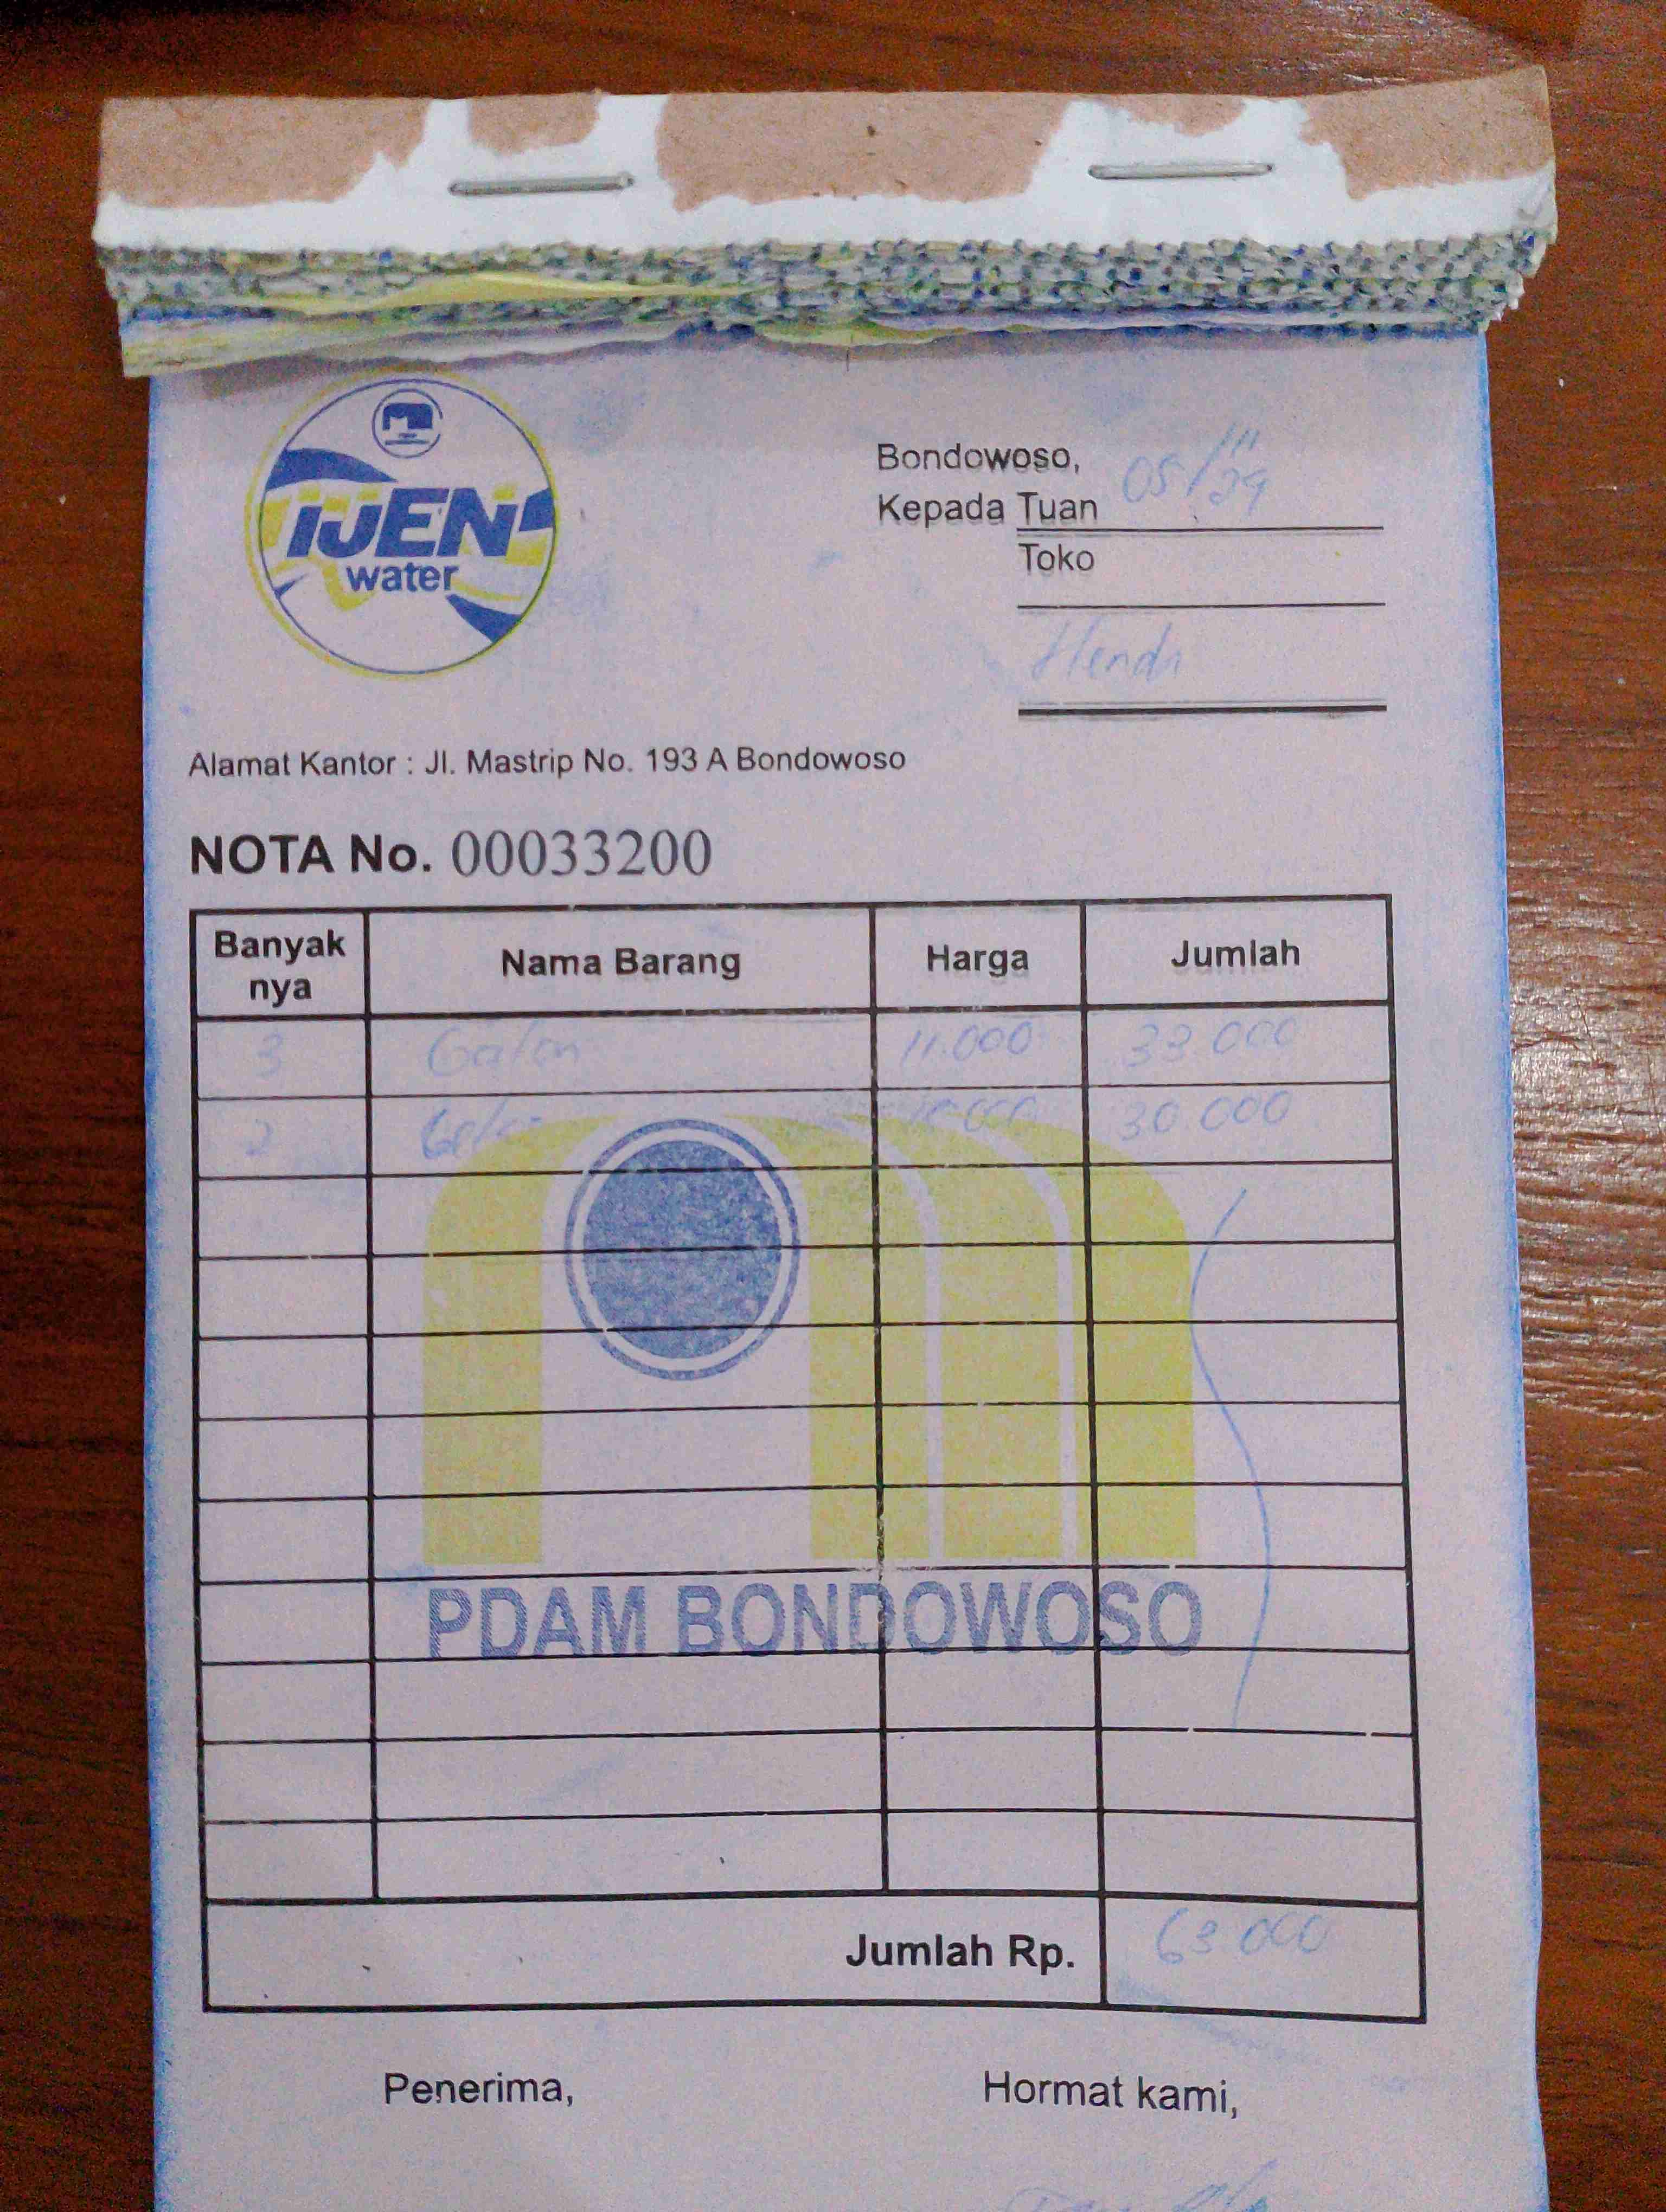 IJEN
water
Bondowoso, 05/11/24
Kepada Tuan
Toko
Hendi
Alamat Kantor : Jl. Mastrip No. 193 A Bondowoso
NOTA No. 00033200
Banyak nya Nama Barang Harga Jumlah
3 Galon 11.000 33.000
2 15.000 30.000
PDAM BONDOWOSO
Jumlah Rp. 63.000
Penerima, Hormat kami,